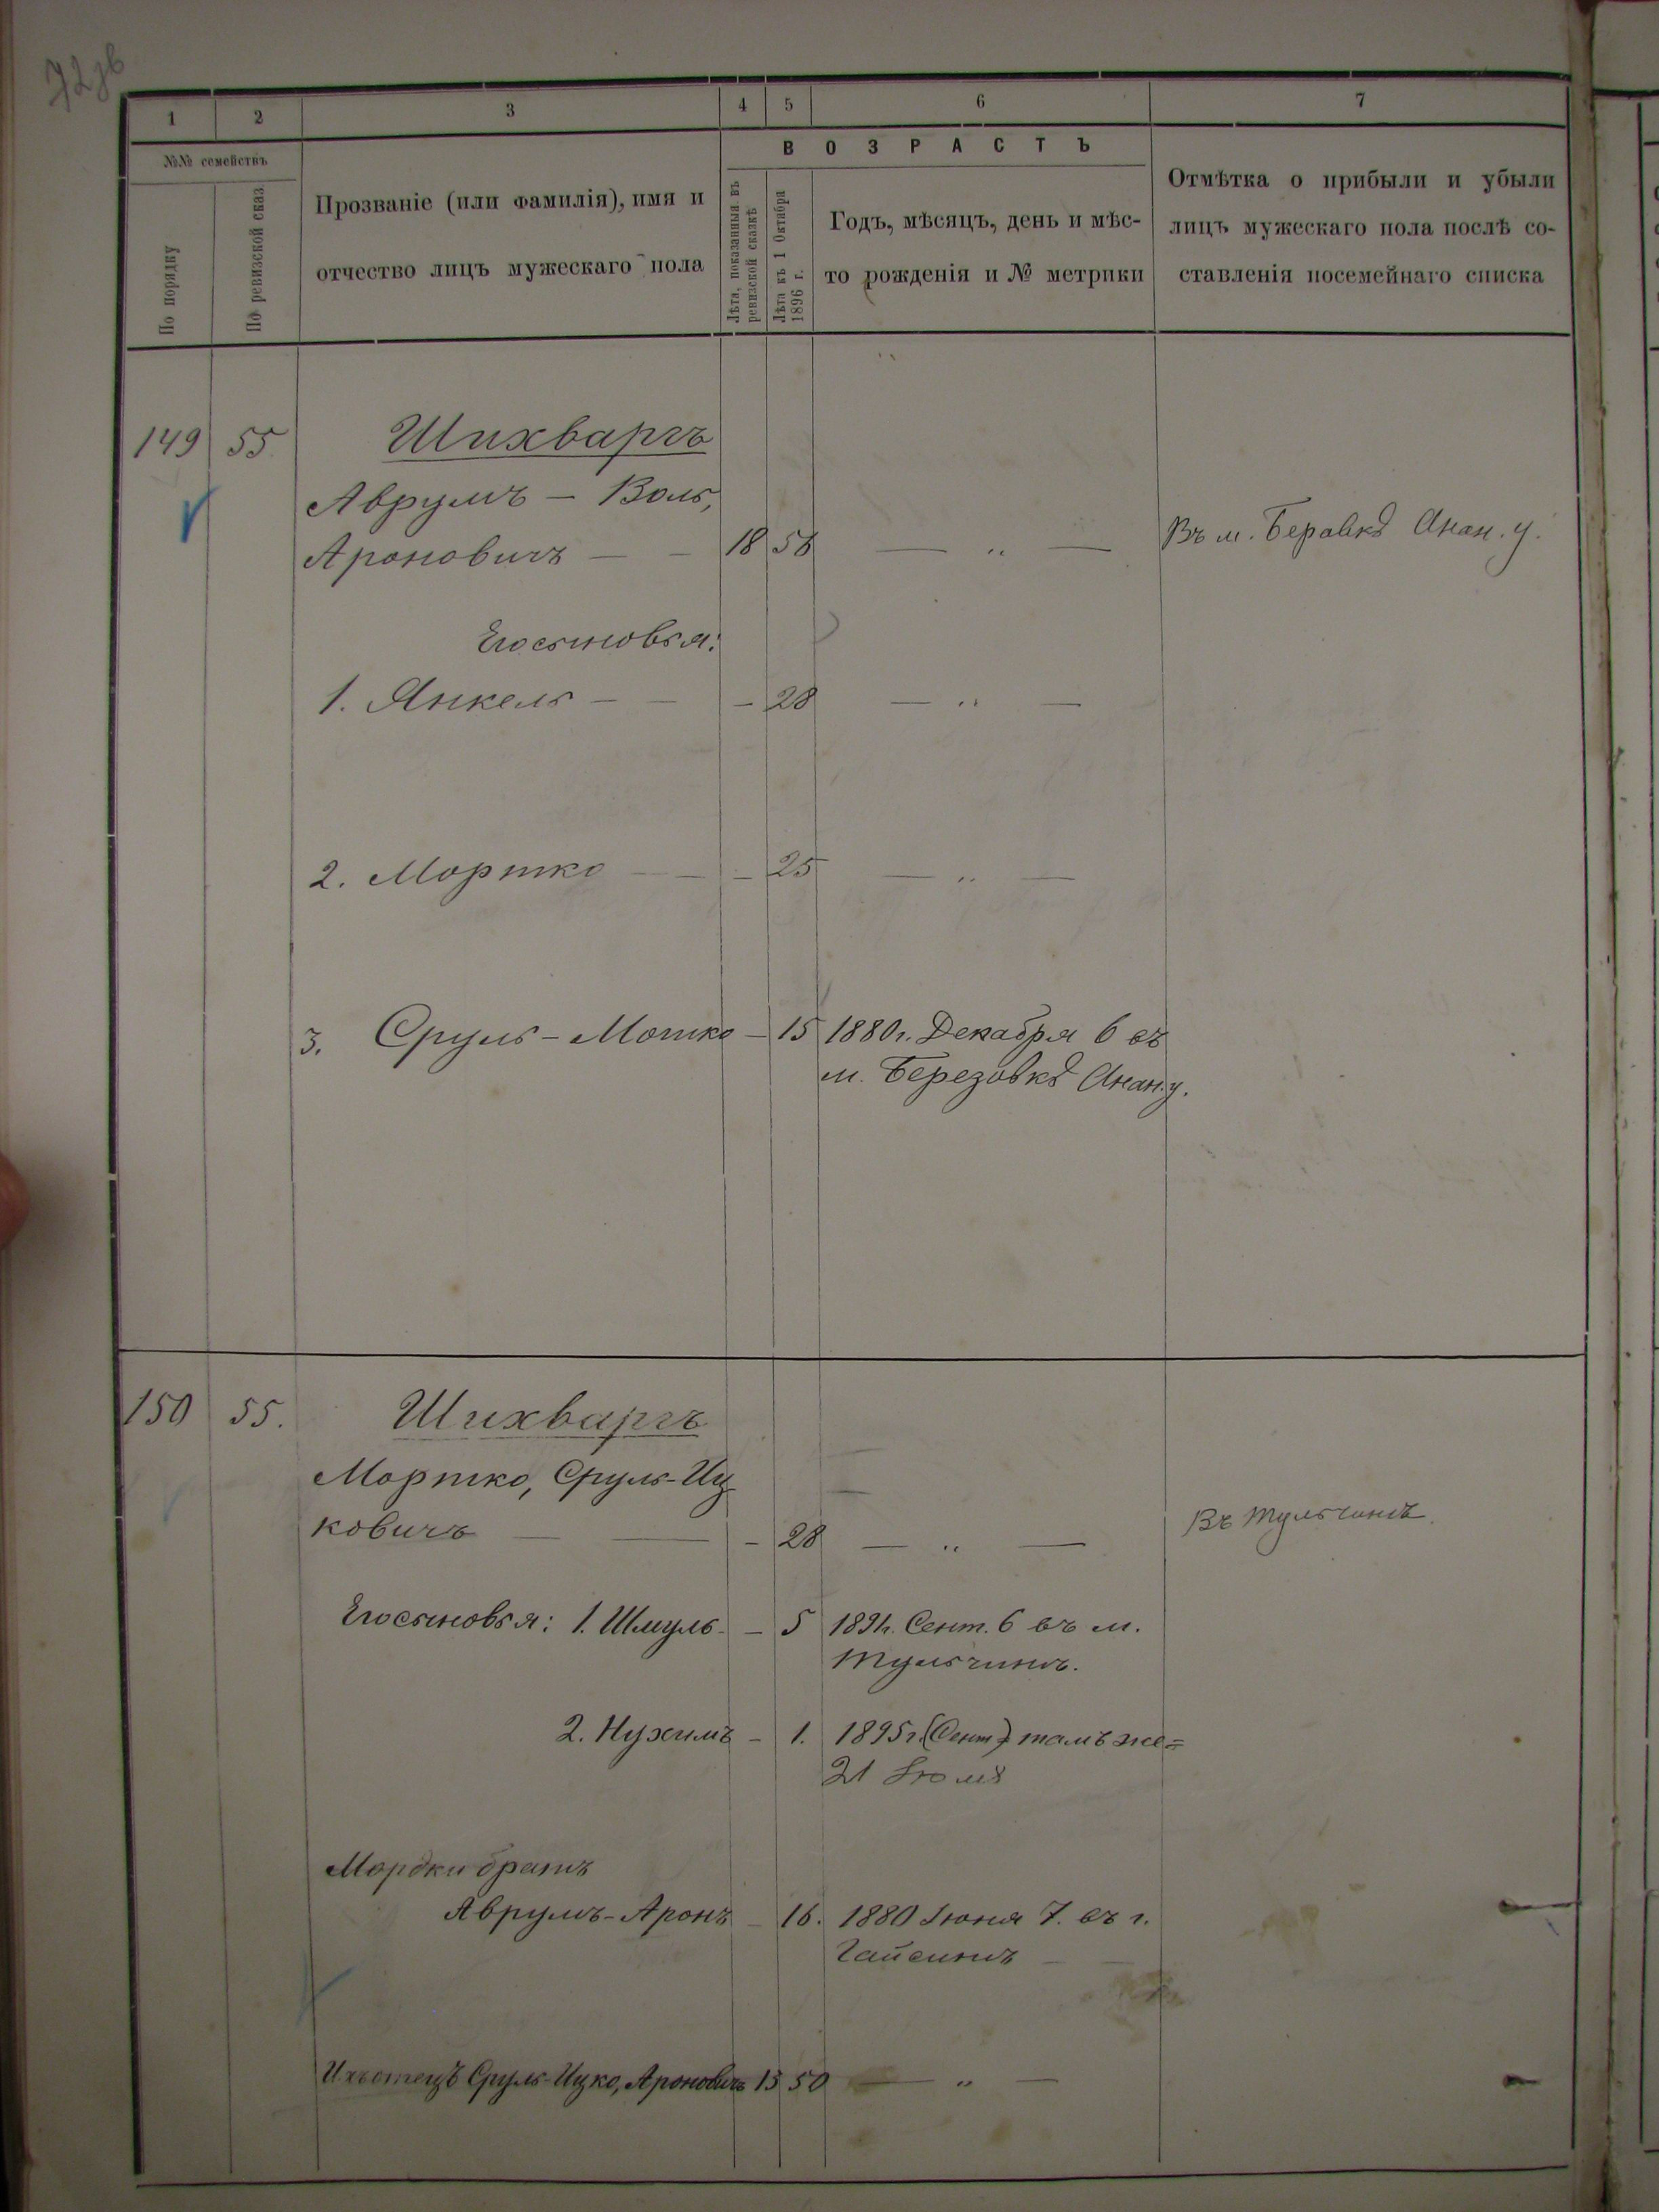 72зв
1 2 3 4 5 6 7
№№ семействъ
По порядку
По ревизской сказ
Прозваніе (или фамилія), имя и
отчество лицъ мужескаго пола
ВОЗРАСТЪ
Лѣта, показанныя въ
ревизской сказкѣ
Лѣта къ 1 Октября
1896 г.
Годъ, мѣсяцъ, день и мѣс-
то рожденія и № метрики
Отмѣтка о прибыли и убыли
лицъ мужескаго пола послѣ со-
ставленія посемейнаго списка
149 55 Шихваргъ
Аврумъ - Воль,
Ароновичъ — - 18 58 — " — Въ м. Беравкѣ Анан. у.
Его сыновья:
1. Янкель - — - 28 — " —
2. Мортко — - - 25 — " —
3. Сруль-Мошко - 15 1880 г. Декабря 6 въ
м. Березовкѣ Анан. у.
150 55. Шихваргъ
Мортко, Сруль-Иц-
ковичъ — — - 28 — " — Въ Тульчинѣ.
Его сыновья: 1. Шмуль - - 5 1891 г. Сент. 6 въ м.
Тульчинѣ.
2. Нухимъ - 1. 1895 г. (Сент.) тамъ же =
21 Іюля
Мордки братъ
Аврумъ-Аронъ - 16. 1880 Іюня 7. въ г.
Гайсинѣ —
Ихъ отецъ Сруль-Ицко, Ароновичъ 13 50 — " —